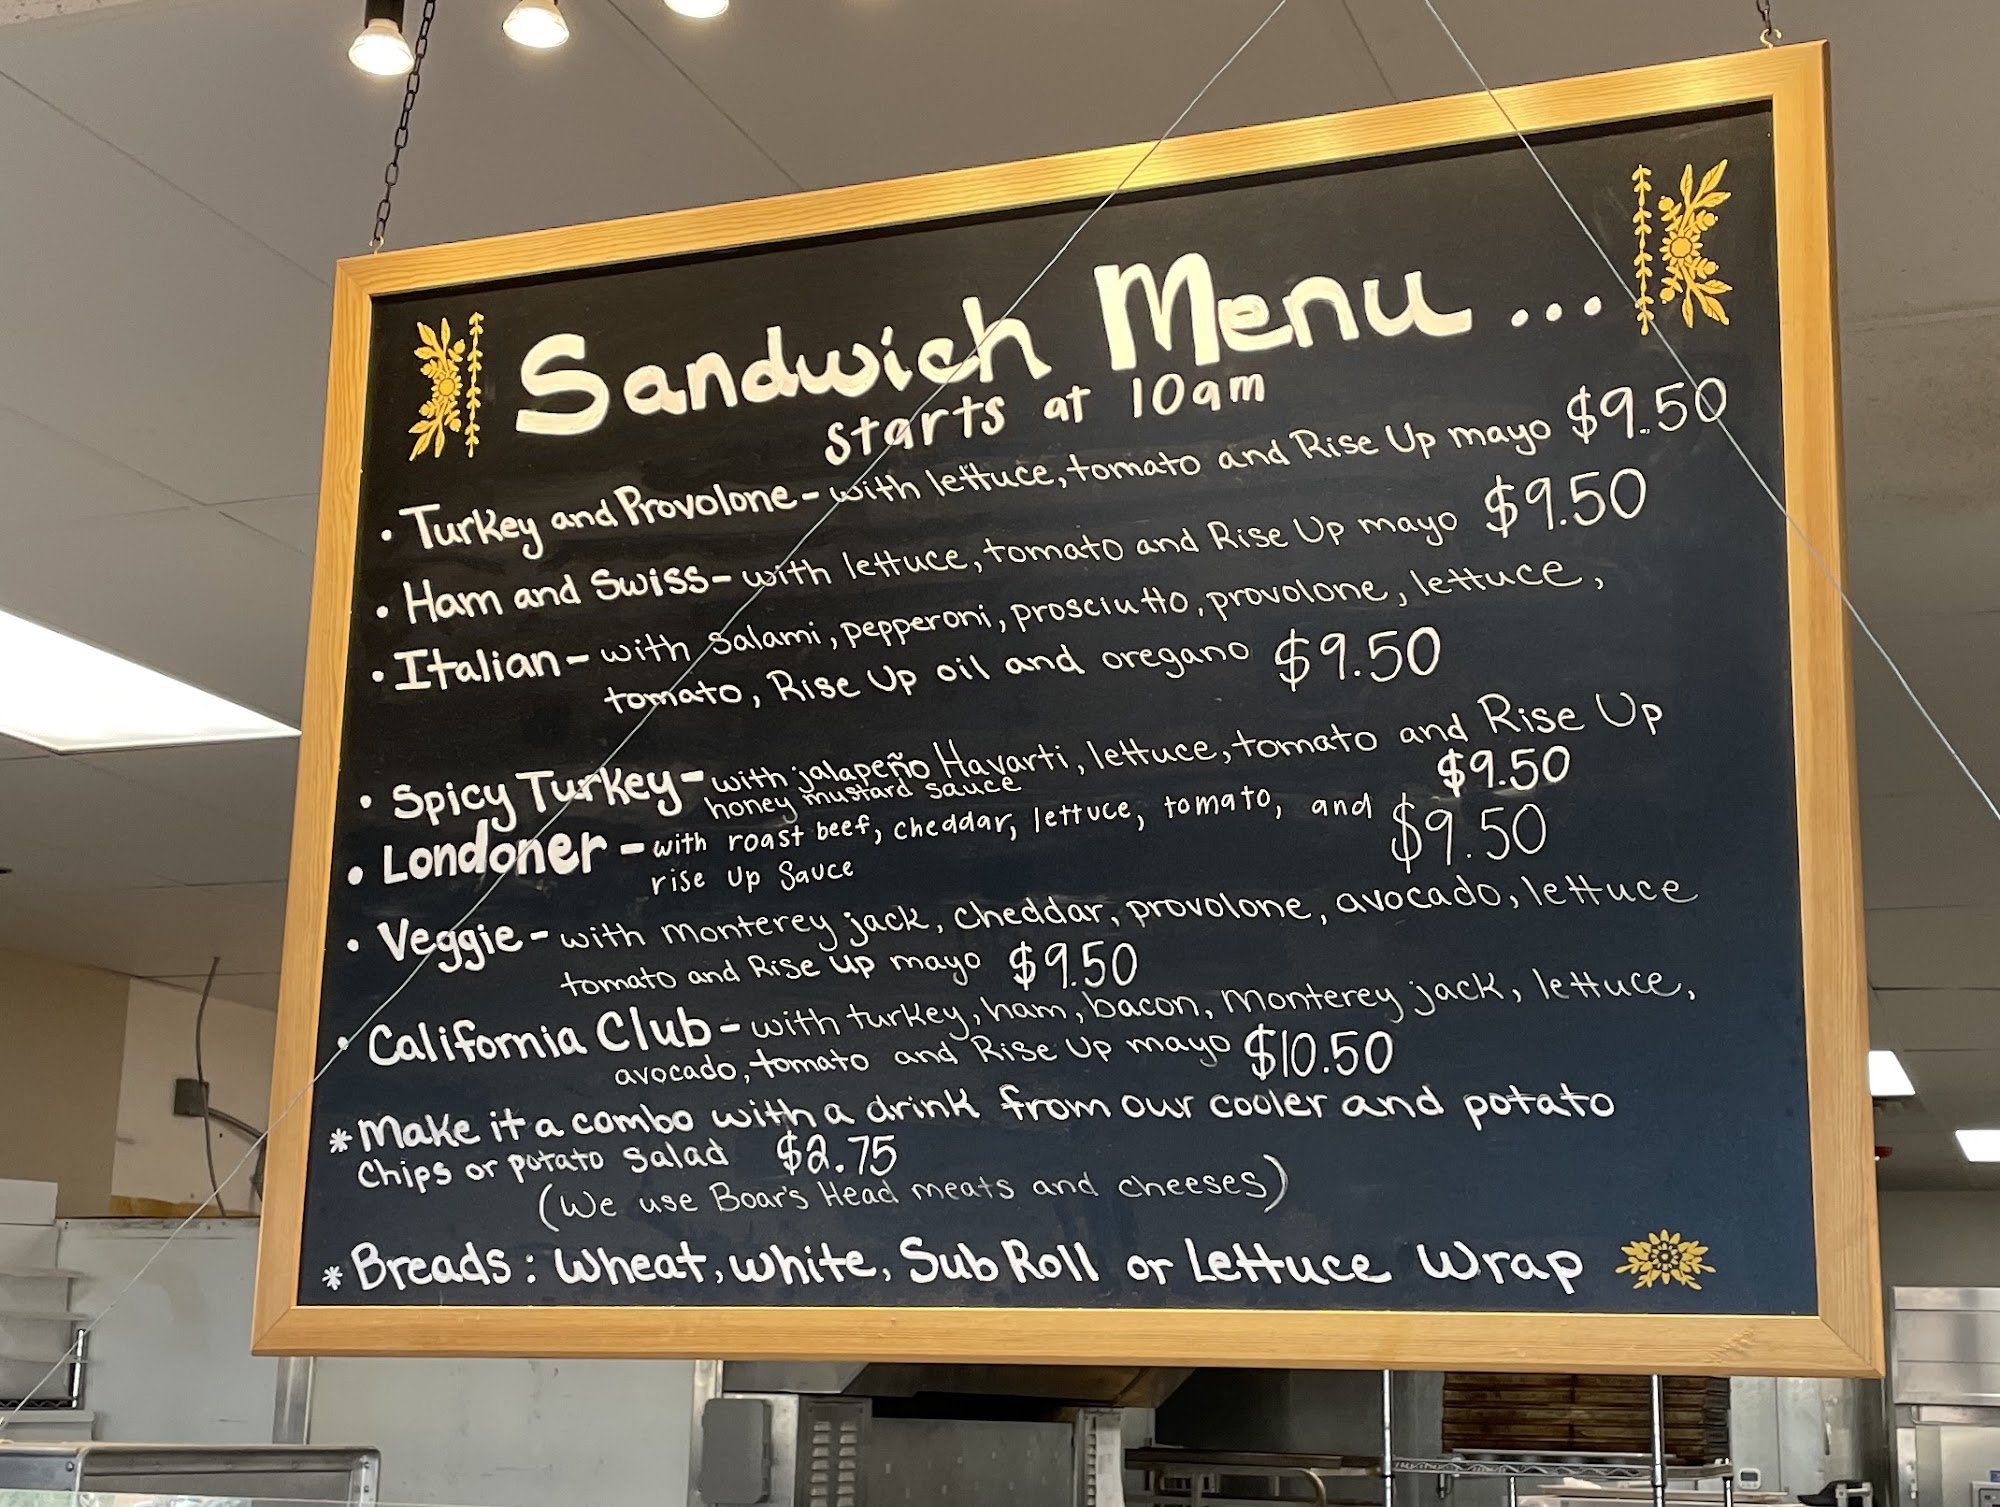 Sandwich Menu...
starts at 10am
• Turkey and Provolone - with lettuce, tomato and Rise Up mayo $9.50
• Ham and Swiss - with lettuce, tomato and Rise Up mayo $9.50
• Italian - with Salami, pepperoni, prosciutto, provolone, lettuce,
tomato, Rise Up oil and oregano $9.50
• Spicy Turkey - with jalapeño Havarti, lettuce, tomato and Rise Up
honey mustard sauce $9.50
• Londoner - with roast beef, cheddar, lettuce, tomato, and $9.50
rise up Sauce
• Veggie - with monterey jack, cheddar, provolone, avocado, lettuce
tomato and Rise up mayo $9.50
• California Club - with turkey, ham, bacon, monterey jack, lettuce,
avocado, tomato and Rise Up mayo $10.50
* Make it a combo with a drink from our cooler and potato
chips or potato salad $2.75
(We use Boar's Head meats and cheeses)
* Breads: wheat, white, Sub Roll or Lettuce Wrap